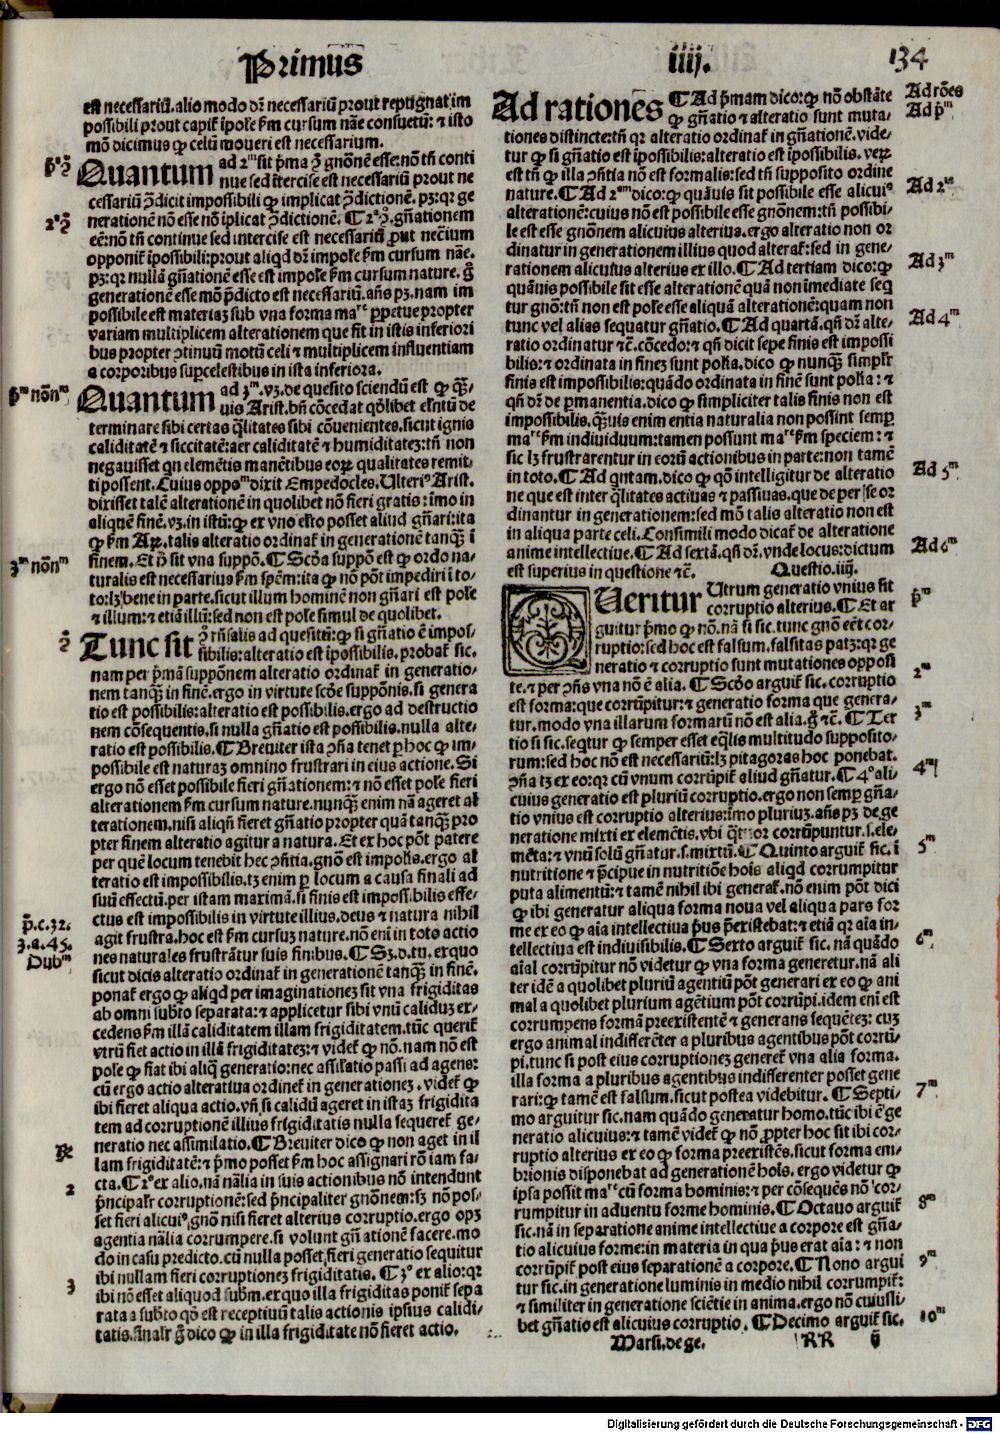 Primus
iiij.
134
est necessariũ. alio modo dr̃ necessariũ prout repugnat im
possibili prout capit̃ ĩpole ẜm cursum nãe consuetũ: ⁊ isto
mõ dicimus ꝙ celũ moueri est necessarium.
p̃ᵃ ꝯ̃
Quantum ad 2ᵐ sit p̃ma ꝯ̃ gnõne esse: nõ tñ conti
nue sed ĩtercise est necessariũ prout ne
cessariũ ꝯ̃dicit impossibili ꝙ implicat ꝯ̃dictionẽ. pꝫ: qr ge
2ᵃ ꝯ̃
nerationẽ nõ esse nõ ĩplicat ꝯ̃dictionẽ. ¶ 2ᵃ ꝯ̃. gñationem
eẽ: nõ tñ continue sed intercise est necessariũ ꝓut necĩum
opponit̃ ĩpossibili: prout aliqd dr̃ impole ẜm cursum nãe.
pꝫ: qr nullã gñationẽ esse est impole ẜm cursum nature. g̃
generationẽ esse mõ p̃dicto est necessariũ. añs pꝫ. nam im
possibile est materiaꝫ sub vna forma maᵗᵉ ꝑpetue propter
variam multiplicem alterationem que fit in istis inferiori
bus propter ꝯtinuũ motũ celi ⁊ multiplicem influentiam
a corporibus suꝑcelestibus in ista inferiora.
p̃ᵐ nõnᵐ
Quantum ad 3ᵐ. vꝫ. de quesito sciendũ est ꝙ q̃ᷓ-
uis Arist. bñ cõcedat qd̓libet elñtũ de
terminare sibi certas q̃litates sibi cõuenientes. sicut ignis
caliditatẽ ⁊ siccitatẽ: aer caliditatẽ ⁊ humiditateꝫ: tñ non
negauisset qn elemẽtis manẽtibus eoꝝ qualitates remit-
ti possent. Cuius opposᵐ dixit Empedocles. Ulteriꝰ Arist.
dixisset talẽ alterationẽ in quolibet nõ fieri gratis: ĩmo in
aliquẽ finẽ. vꝫ. in istũ: ꝙ ex vno elñto posset aliud gñari: ita
ꝙ ẜm Aꝝ. talis alteratio ordinat̃ in generationẽ tanq̃ᷓ ĩ
3ᵐ nõnᵐ
finem. Et p̃ sit vna suppõ. ¶ Scd̓a suppõ est ꝙ ordo na-
turalis est necessarius ẜm spẽm: ita ꝙ nõ põt impediri ĩ to-
to: lꝫ bene in parte. sicut illum hominẽ non gñari est pole
⁊ illum: ⁊ etiã illũ: sed non est pole simul de quolibet.
ꝯ̃
Tunc sit ꝯ̃ rñsalis ad quesitũ: ꝙ si gñatio ẽ impos-
sibilis: alteratio est ĩpossibilis. probat̃ sic.
nam per p̃mã suppõnem alteratio ordinat̃ in generatio-
nem tanq̃ᷓ in finẽ. ergo in virtute scd̓e suppõnis. si genera
tio est possibilis: alteratio est possibilis. ergo ad destructio
nem cõsequentis. si nulla gñatio est possibilis. nulla alte-
ratio est possibilis. ¶ Breuiter ista ꝯñã tenet ꝑ hoc ꝙ im-
possibile est naturaꝫ omnino frustrari in eius actione. Si
ergo nõ esset possibile fieri gñationem: ⁊ nõ esset pole fieri
alterationem ẜm cursum nature. nunq̃ᷓ enim nã ageret al
terationem. nisi aliqñ fieret gñatio propter quã tanq̃ᷓ pro
pter finem alteratio agitur a natura. Et ex hoc põt patere
per quẽ locum tenebit hec ꝯñtia. gnõ est impolis. ergo al
teratio est impossibilis. tꝫ enim ꝑ locum a causa finali ad
suũ effectũ. per istam maximã. si finis est impossibilis effe-
p̃. c. 32.
ctus est impossibilis in virtute illius. deus ⁊ natura nihil
3. a. 45.
agit frustra. hoc est ẜm cursuꝫ nature. nõ enĩ in toto actio
Dubᵐ
nes naturales frustrãtur suis finibus. ¶ Sꝫ. d. tu. ex quo
sicut dicis alteratio ordinat̃ in generationẽ tanq̃ᷓ in finẽ.
ponat̃ ergo ꝙ aliqd per imaginationeꝫ sit vna frigiditas
ab omni subto separata: ⁊ applicetur sibi vnũ caliduꝫ ex-
cedens ẜm illã caliditatem illam frigiditatem. tũc querit̃
vtrũ fiet actio in illã frigiditateꝫ: ⁊ videt̃ ꝙ nõ. nam nõ est
pole ꝙ fiat ibi aliq̃ generatio: nec assilatio passi ad agens:
cũ ergo actio alteratiua ordinet̃ in generationeꝫ. videt̃ ꝙ
ibi fieret aliqua actio. vñ si calidũ ageret in istaꝫ frigidita
tem ad corruptionẽ illius frigiditatis nulla sequeret̃ ge-
℞
neratio nec assimilatio. ¶ Breuiter dico ꝙ non aget in il
lam frigiditatẽ: ⁊ p̃mo posset ẜm hoc assignari rõ iam fa-
2
cta. ¶ 2º ex alio. nã nãlia in suis actionibus nõ intendunt
p̃ncipalr̃ corruptionẽ: sed p̃ncipaliter gnõnem: sꝫ nõ pos-
set fieri alicuiꝰ gnõ nisi fieret alterius corruptio. ergo opꝫ
agentia nãlia corrumpere. si volunt gñationẽ facere. mo
do in casu predicto. cũ nulla posset fieri generatio sequitur
ibi nullam fieri corruptioneꝫ frigiditatis. ¶ 3º ex alio: qr
3
ibi nõ esset aliquod subm̃. ex quo illa frigiditas ponit̃ sepa
rata a subto qd̓ est receptiuũ talis actionis ipsius calidi-
tatis. finalr̃ g̃ dico ꝙ in illa frigiditate nõ fieret actio.
Ad rões
Ad p̃ᵐ
Ad rationes ¶ Ad p̃mam dico: ꝙ nõ obstãte
ꝙ gñatio ⁊ alteratio sunt muta-
tiones distincte: tñ qr alteratio ordinat̃ in gñationẽ. vide-
tur ꝙ si gñatio est ĩpossibilis: alteratio est ĩpossibilis. veꝝ
est tñ ꝙ illa ꝯñtia nõ est formalis: sed tñ supposito ordine
Ad 2ᵐ
nature. ¶ Ad 2ᵐ dico: ꝙ quãuis sit possibile esse alicuiꝰ
alterationẽ: cuius nõ est possibile esse gnõnem: tñ possibi-
le est esse gnõnem alicuius alterius. ergo alteratio non or
dinatur in generationem illius quod alterat̃: sed in gene-
Ad 3ᵐ
rationem alicuius alterius ex illo. ¶ Ad tertiam dico: ꝙ
quãuis possibile sit esse alterationẽ quã non ĩmediate seq̃
tur gnõ: tñ non est pole esse aliquã alterationẽ: quam non
Ad 4ᵐ
tunc vel alias sequatur gñatio. ¶ Ad quartã. qñ dr̃ alte-
ratio ordinatur ⁊c̃. cõcedo: ⁊ qñ dicit sepe finis est impossi
bilis: ⁊ ordinata in fineꝫ sunt polia. dico ꝙ nunq̃ᷓ simplr̃
finis est impossibilis: quãdo ordinata in finẽ sunt polia: ⁊
qñ dr̃ de ꝑmanentia. dico ꝙ simpliciter talis finis non est
impossibilis. q̃ᷓuis enim entia naturalia non possint semꝑ
maᵗᵉ ẜm indiuiduum: tamen possunt maᵗᵉ ẜm speciem: ⁊
sic lꝫ frustrarentur in eorũ actionibus in parte: non tamẽ
Ad 5ᵐ
in toto. ¶ Ad q̃ntam. dico ꝙ qõ intelligitur de alteratio
ne que est inter q̃litates actiuas ⁊ passiuas. que de per se or
dinantur in generationem: sed mõ talis alteratio non est
in aliqua parte celi. Consimili modo dicat̃ de alteratione
Ad 6ᵐ
anime intellectiue. ¶ Ad sextã. qñ dr̃. vnde locus: dictum
est superius in questione ⁊c̃. Questio. iiij.
p̃ᵐ
QUeritur Utrum generatio vnius sit
corruptio alterius. ¶ Et ar
guitur p̃mo ꝙ nõ. nã si sic. tunc gnõ eẽt cor-
ruptio: sed hoc est falsum. falsitas patꝫ: qr ge
2ᵐ
neratio ⁊ corruptio sunt mutationes opposi
te. ⁊ per ꝯñs vna nõ ẽ alia. ¶ Scd̓o arguit̃ sic. corruptio
est forma: que corrũpitur: ⁊ generatio forma que genera-
3ᵐ
tur. modo vna illarum formarũ nõ est alia. g̃ ⁊c̃. ¶ Ter
tio si sic. seq̃tur ꝙ semper esset eq̃lis multitudo supposito-
rum: sed hoc nõ est necessariũ: lꝫ pitagoras hoc ponebat.
4ᵐ
ꝯñã tꝫ ex eo: qr cũ vnum corrũpit̃ aliud gñatur. ¶ 4º ali-
cuius generatio est pluriũ corruptio. ergo non semꝑ gña-
tio vnius est corruptio alterius: ĩmo pluriuꝫ. añs pꝫ de ge
neratione mixti ex elemẽtis. vbi q̃ttuor corrũpuntur. s. ele-
5ᵐ
mẽta: ⁊ vnũ solũ gñatur. s. mixtũ. ¶ Quinto arguit̃ sic. ĩ
nutritione ⁊ p̃cipue in nutritiõe hoĩs aliqd corrumpitur
puta alimentũ: ⁊ tamẽ nihil ibi generat̃. nõ enim põt dici
ꝙ ibi generatur aliqua forma noua vel aliqua pars for
me ex eo ꝙ aĩa intellectiua p̃us p̃existebat: ⁊ etiã qr aĩa in-
6ᵐ
tellectiua est indiuisibilis. ¶ Sexto arguit̃ sic. nã quãdo
aĩal corrũpitur nõ videtur ꝙ vna forma generetur. nã ali
ter idẽ a quolibet pluriũ agentiũ põt generari ex eo ꝙ ani
mal a quolibet plurium agẽtium põt corrũpi. idem enĩ est
corrumpens formã preexistentẽ ⁊ generans sequẽteꝫ: cuꝫ
ergo animal indifferẽter a pluribus agentibus põt corrũ-
pi. tunc si post eius corruptioneꝫ generet̃ vna alia forma.
illa forma a pluribus agentibus indifferenter posset gene
7ᵐ
rari: ꝙ tamẽ est falsum. sicut postea videbitur. ¶ Septi-
mo arguitur sic. nam quãdo generatur homo. tũc ibi ẽ ge
neratio alicuius: ⁊ tamẽ videt̃ ꝙ nõ ꝓpter hoc sit ibi cor-
ruptio alterius ex eo ꝙ forma preexistẽs. sicut forma em-
brionis disponebat ad generationẽ hoĩs. ergo videtur ꝙ
ipsa possit maᵗᵉ cũ forma hominis: ⁊ per cõsequẽs nõ cor-
8ᵐ
rumpitur in aduentu forme hominis. ¶ Octauo arguit̃
sic. nã in separatione anime intellectiue a corpore est gña-
tio alicuius forme: in materia in qua p̃us erat aĩa: ⁊ non
9ᵐ
corrũpit̃ post eius separationẽ a corpore. ¶ Nono argui
tur sic. in generatione luminis in medio nihil corrumpit̃:
⁊ similiter in generatione sciẽtie in anima. ergo nõ cuiusli-
10ᵐ
bet gñatio est alicuius corruptio. ¶ Decimo arguit̃ sic.
Marsi. de ge. RR ij
Digitalisierung gefördert durch die Deutsche Forschungsgemeinschaft - DFG